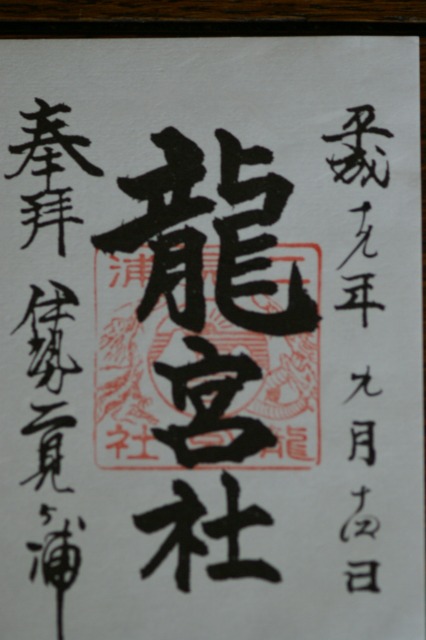 平成十九年 九月十四日
龍宮社
奉拝 伊勢二見ヶ浦
二見浦
龍宮社